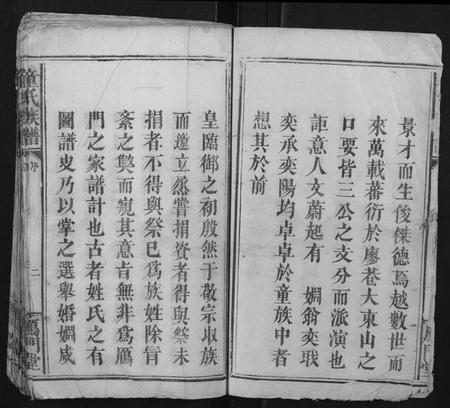 景才而生俊傑德焉越數世而
來萬載蕃衍於廖巷大東山之
口要皆三公之支分而派演也
詎意人文蔚起有 婣翁奕珴
奕承奕陽均卓卓於童族中者
想其於前
皇臨御之初殷然于敬宗收族
而邀立然嘗捐資者得與祭未
捐者不得與祭巳爲族姓除肓
紊之獘而窺其意㫖無非爲鴈
門之家譜計也古者姓氏之有
圖譜㕜乃以掌之選舉婚婣咸
童氏族譜
序
二
鴈門堂